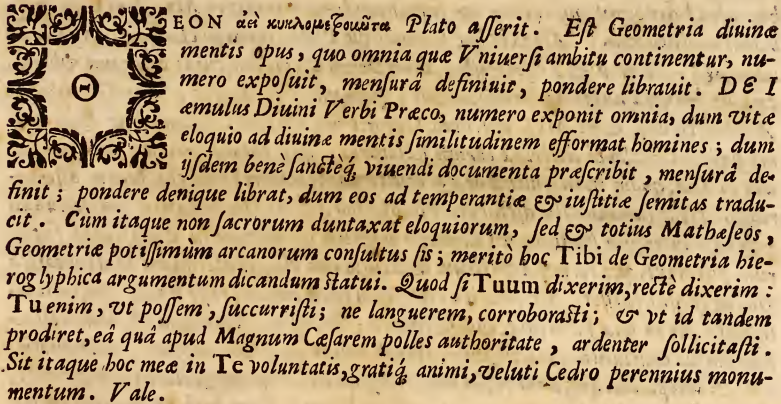 ΘEON ἀεὶ κυκλομεξουῶτα Plato aſſerit. Eſt Geometria diuinæ
mentis opus, quo omnia quæ Vniuerſi ambitu continentur, nu-
mero expoſuit, menſurâ definiuit, pondere librauit. DEI
æmulus Diuini Verbi Præco, numero exponit omnia, dum vitæ
eloquio ad diuinæ mentis ſimilitudinem efformat homines; dum
ijſdem benè ſanctèq́; viuendi documenta præſcribit, menſurâ de-
finit; pondere denique librat, dum eos ad temperantiæ & iuſtitiæ ſemitas tradu-
cit. Cùm itaque non ſacrorum duntaxat eloquiorum, ſed & totius Matheſeos,
Geometriæ potiſſimùm arcanorum conſultus ſis; meritò hoc Tibi de Geometria hie-
roglyphica argumentum dicandum ſtatui. Quod ſi Tuum dixerim, rectè dixerim:
Tu enim, vt poſſem, ſuccurriſti; ne languerem, corroboraſti; & vt id tandem
prodiret, eâ quâ apud Magnum Cæſarem polles authoritate, ardenter ſollicitaſti.
Sit itaque hoc meæ in Te voluntatis, gratiq́; animi, veluti Cedro perennius monu-
mentum. Vale.